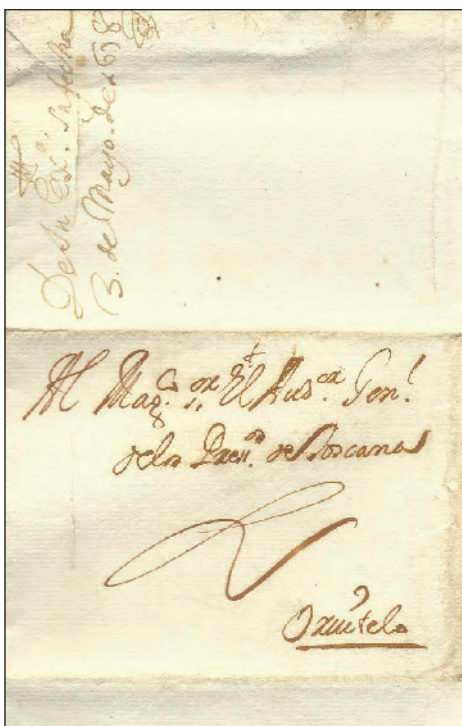 De Su Exc.ª Su fecha
3. de Mayo. de 1698
Al Mag.co s.or El Aud.or Gen.l
de los Pres.os de Toscana
Orbitelo